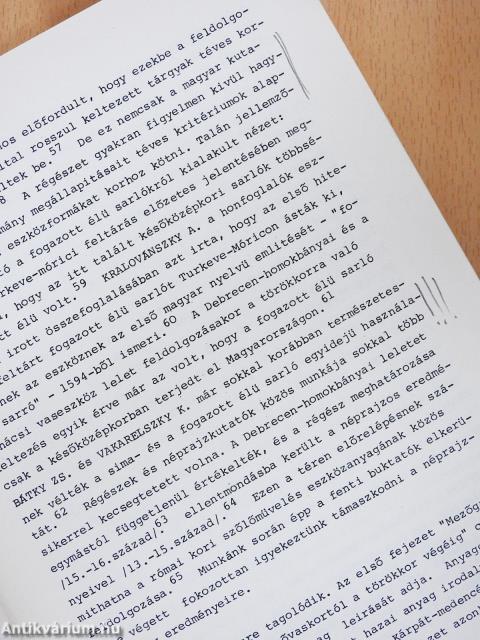 nos előfordult, hogy ezekbe a feldolgo-
ltal rosszul keltezett tárgyak téves kor-
ltek be.57 De ez nemcsak a magyar kuta-
8 A régészet gyakran figyelmen kívül hagy-
mány megállapításait téves kritériumok alap-
eszközformákat korhoz kötni. Talán jellemző-
tó a fogazott élü sarlókról kialakult nézet:
rkeve-mórici feltárás előzetes jelentésében meg-
a, hogy az itt talált későközépkori sarlók többsé-
tt élü volt.59 KRALOVÁNSZKY A. a honfoglalók esz-
irott összefoglalásában azt írta, hogy az első hite-
feltárt fogazott élü sarlót Turkeve-Móricon ásták ki,
nek az eszköznek az első magyar nyelvü emlitését - "fo-
sarró" - 1594-ből ismeri.60 A Debrecen-homokbányai és a
hácsi vaseszköz lelet feldolgozásakor a törökkorra való
eltezés egyik érve már az volt, hogy a fogazott élü sarló
csak a későközépkorban terjedt el Magyarországon.61
BÁTKY ZS. és VAKARELSZKY K. már sokkal korábban természetes-
nek vélték a sima- és a fogazott élü sarló egyidejü használa-
tát.62 Régészek és néprajzkutatók közös munkája sokkal több
sikerrel kecsegtetett volna. A Debrecen-homokbányai leletet
egymástól függetlenül értékelték, és a régész meghatározása
/15.-16.század/63 ellentmondásba került a néprajzos eredmé-
nyeivel /13.-15.század/.64 Ezen a téren előrelépésnek szá-
mithatna a római kori szőlőmüvelés eszközanyagának közös
feldolgozása.65 Munkánk során épp a fenti buktatók elkerü-
végett fokozottan igyekeztünk támaszkodni a néprajz-
eredményeire.
tagolódik. Az első fejezet "Mezőg
a törökkor végéig" c
leirását adja. Anyag
hazai anyag irodal
Kárpát-medencé
azonl
Antikvárium.hu